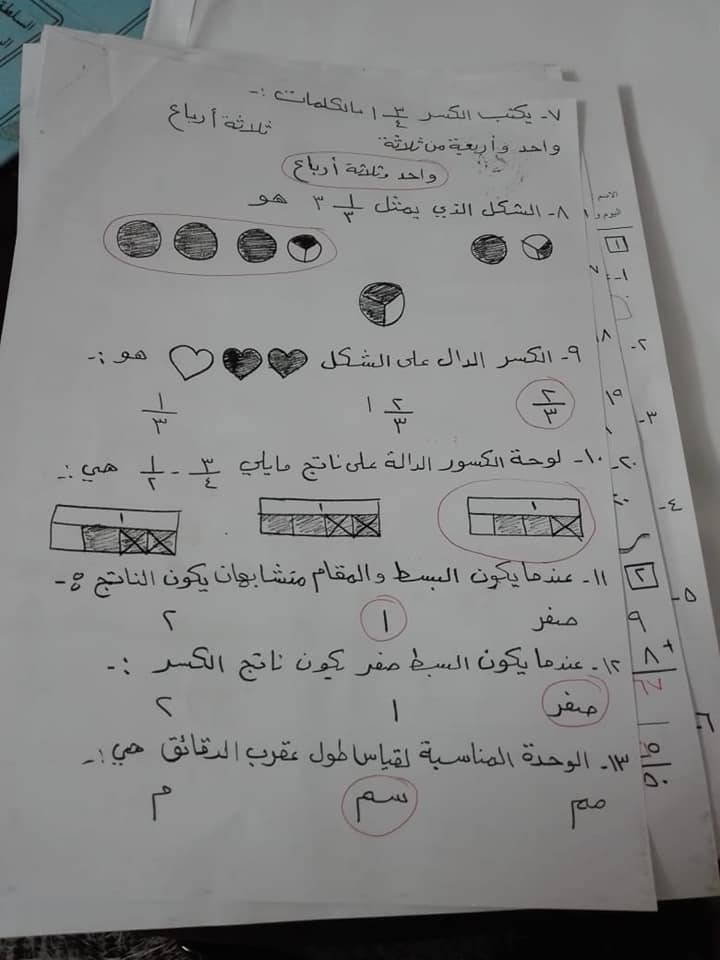 ٧- يكتب الكسر ٣/٤ ١ بالكلمات :-
ثلاثة أرباع
واحد وأربعية من ثلاثة
واحد وثلاثة أرباع
٨- الشكل الذي يمثل ١/٣ ٣ هو
٩- الكسر الدال على الشكل هو :-
٢/٣ ١ ٢/٣ ١/٣
١٠- لوحة الكسور الدالة على ناتج مايلي ٣/٤ - ١/٢ هي :-
١ ١ ١
١١- عندما يكون البسط والمقام متشابهان يكون الناتج :-
صفر ١ ٢
١٢- عندما يكون البسط صفر يكون ناتج الكسر :-
صفر ١ ٢
١٣- الوحدة المناسبة لقياس طول عقرب الدقائق هي :-
مم سم م
الاسم :
١
١-
٢-
٣-
٤-
٢
٥-
٩
٨ +
٦-
٥٠